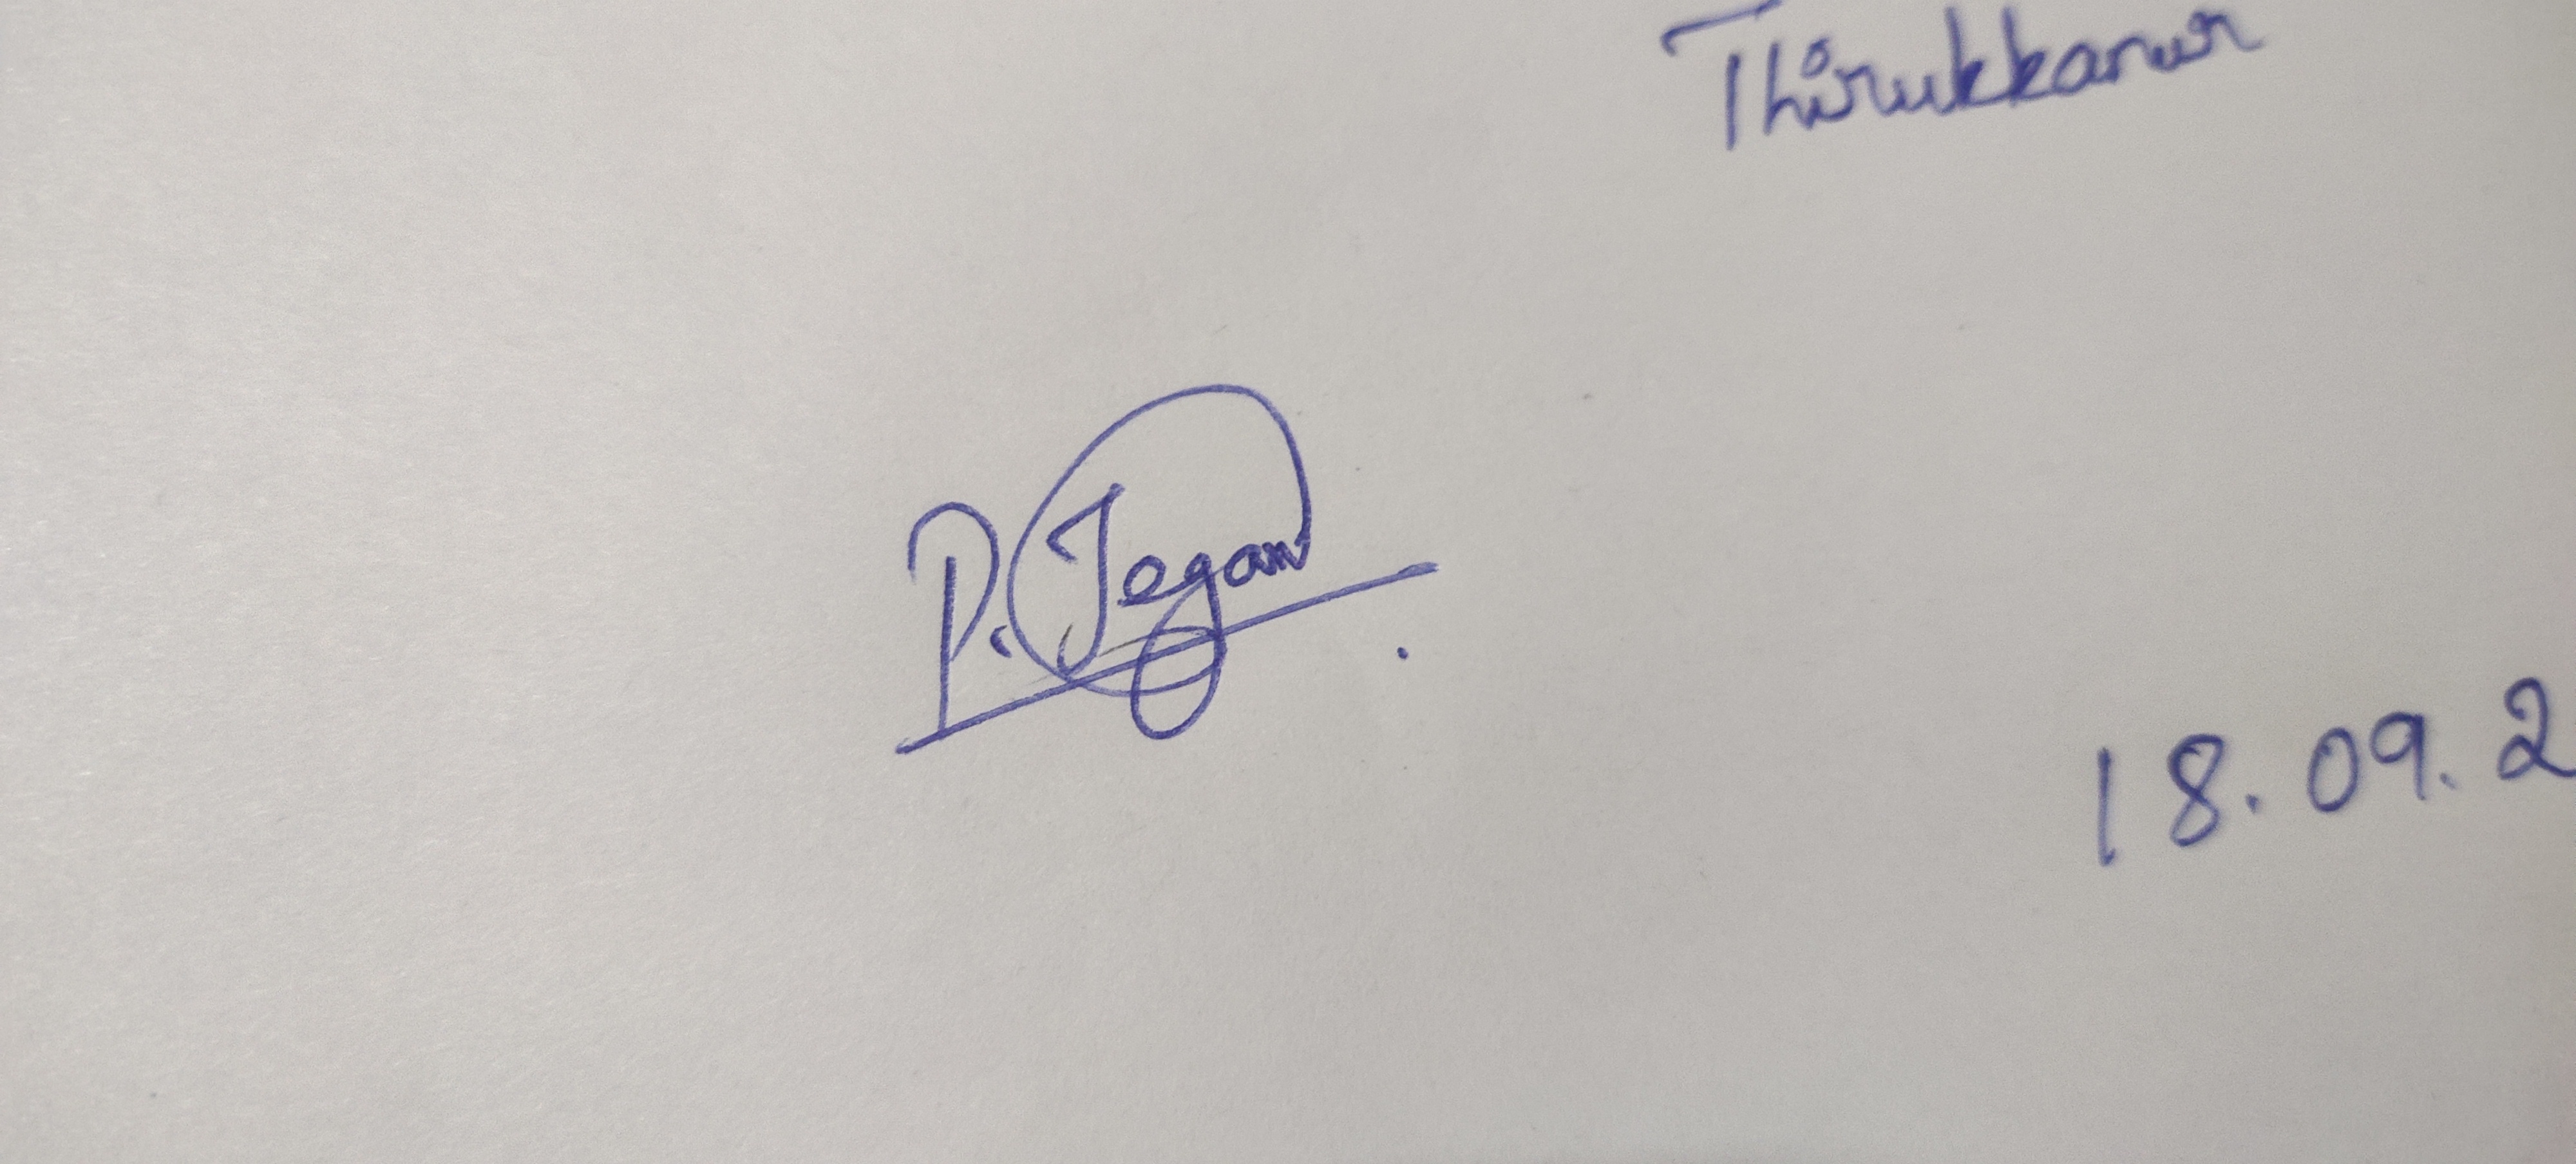 Thirukkanur
P. Jegan
18.09.2